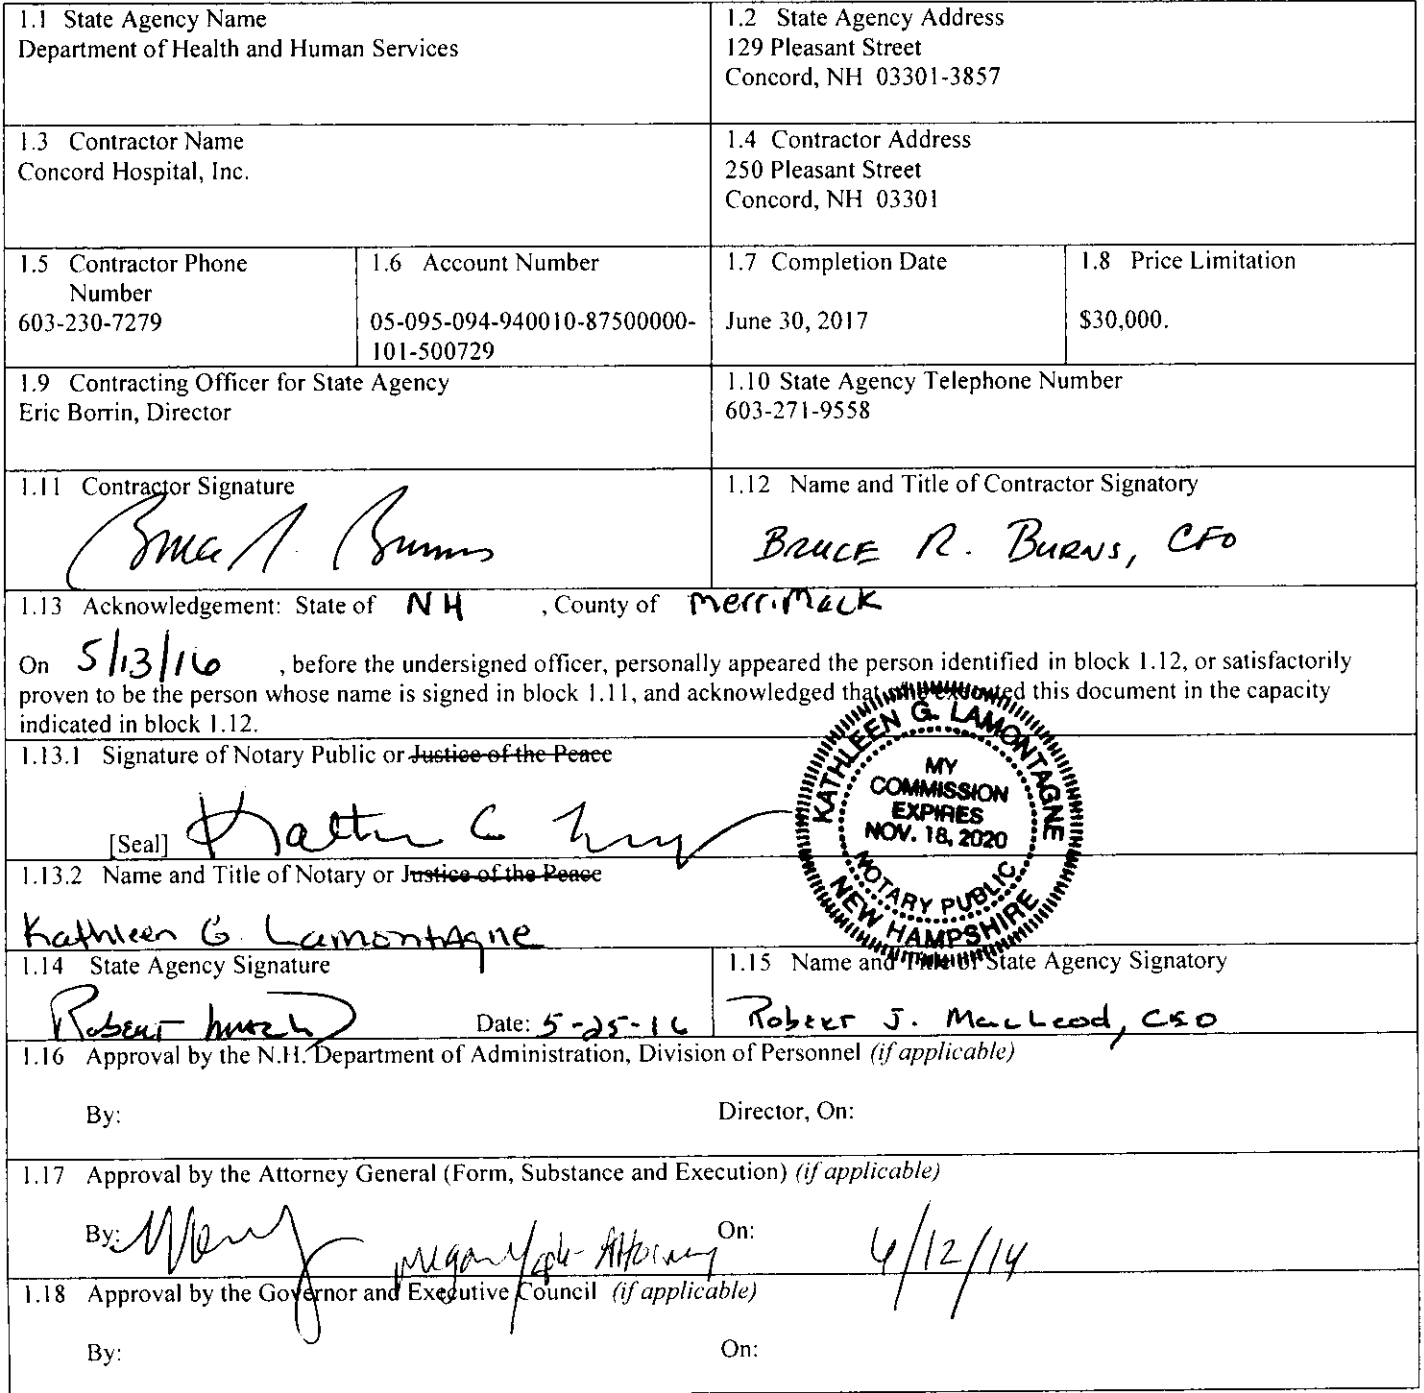 1.1 State Agency Name
Department of Health and Human Services
1.2 State Agency Address
129 Pleasant Street
Concord, NH 03301-3857
1.3 Contractor Name
Concord Hospital, Inc.
1.4 Contractor Address
250 Pleasant Street
Concord, NH 03301
1.5 Contractor Phone
Number
603-230-7279
1.6 Account Number
05-095-094-940010-87500000-
101-500729
1.7 Completion Date
June 30, 2017
1.8 Price Limitation
$30,000.
1.9 Contracting Officer for State Agency
Eric Borrin, Director
1.10 State Agency Telephone Number
603-271-9558
1.11 Contractor Signature
Bruce R. Burns
1.12 Name and Title of Contractor Signatory
BRUCE R. BURNS, CFO
1.13 Acknowledgement: State of NH , County of Merrimack
On 5/13/16 , before the undersigned officer, personally appeared the person identified in block 1.12, or satisfactorily
proven to be the person whose name is signed in block 1.11, and acknowledged that executed this document in the capacity
indicated in block 1.12.
1.13.1 Signature of Notary Public or Justice of the Peace
[Seal]
KATHLEEN G. LAMONTAGNE
MY
COMMISSION
EXPIRES
NOV. 18, 2020
NOTARY PUBLIC
NEW HAMPSHIRE
1.13.2 Name and Title of Notary or Justice of the Peace
Kathleen G. Lamontagne
1.14 State Agency Signature
Date: 5-25-16
1.15 Name and Title of State Agency Signatory
Robert J. MacLeod, CEO
1.16 Approval by the N.H. Department of Administration, Division of Personnel (if applicable)
By:
Director, On:
1.17 Approval by the Attorney General (Form, Substance and Execution) (if applicable)
By: Attorney
On:
1.18 Approval by the Governor and Executive Council (if applicable)
By:
On: